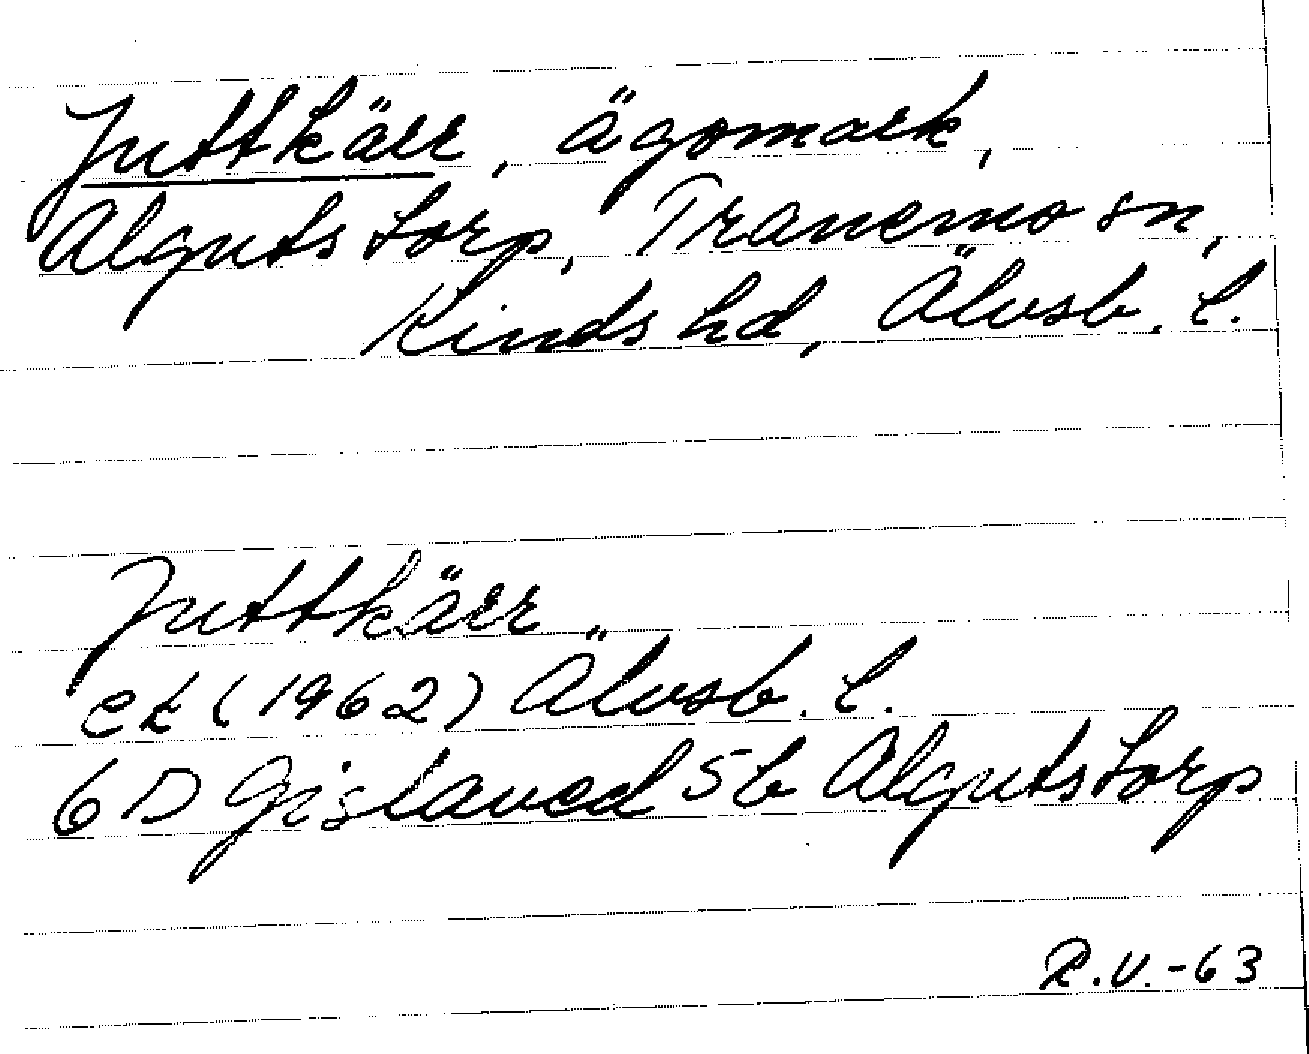 Juttkärr, ägomark,
Algutstorp, Tranemo sn,
Kinds hd, Älvsb. l.
Juttkärr
ek (1962) Älvsb. l.
6 D Gislaved 5b Algutstorp
R.V.-63